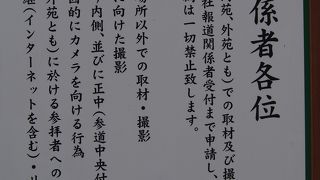 係者各位
苑、外苑とも）での取材及び撮
社報道関係者受付まで申請し、
は一切禁止致します。
場所以外での取材・撮影
に向けた撮影
内側、並びに正中（参道中央付
的にカメラを向ける行為
外苑とも）に於ける参拝者への
（インターネットを含む）・